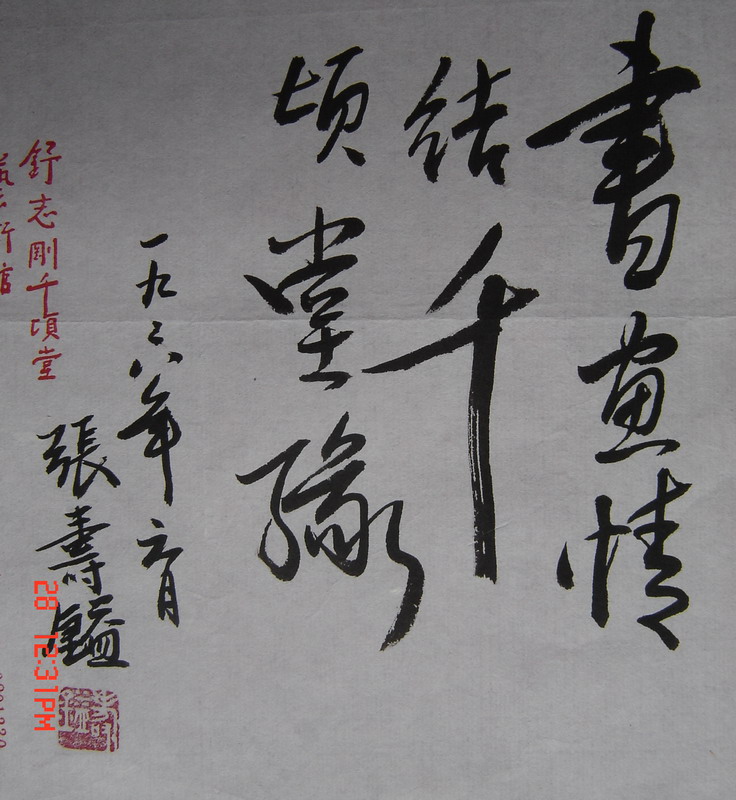 書畫情
結千
頃堂緣
一九九六年元月
張壽鎰
舒志剛千頃堂
28 12:31PM